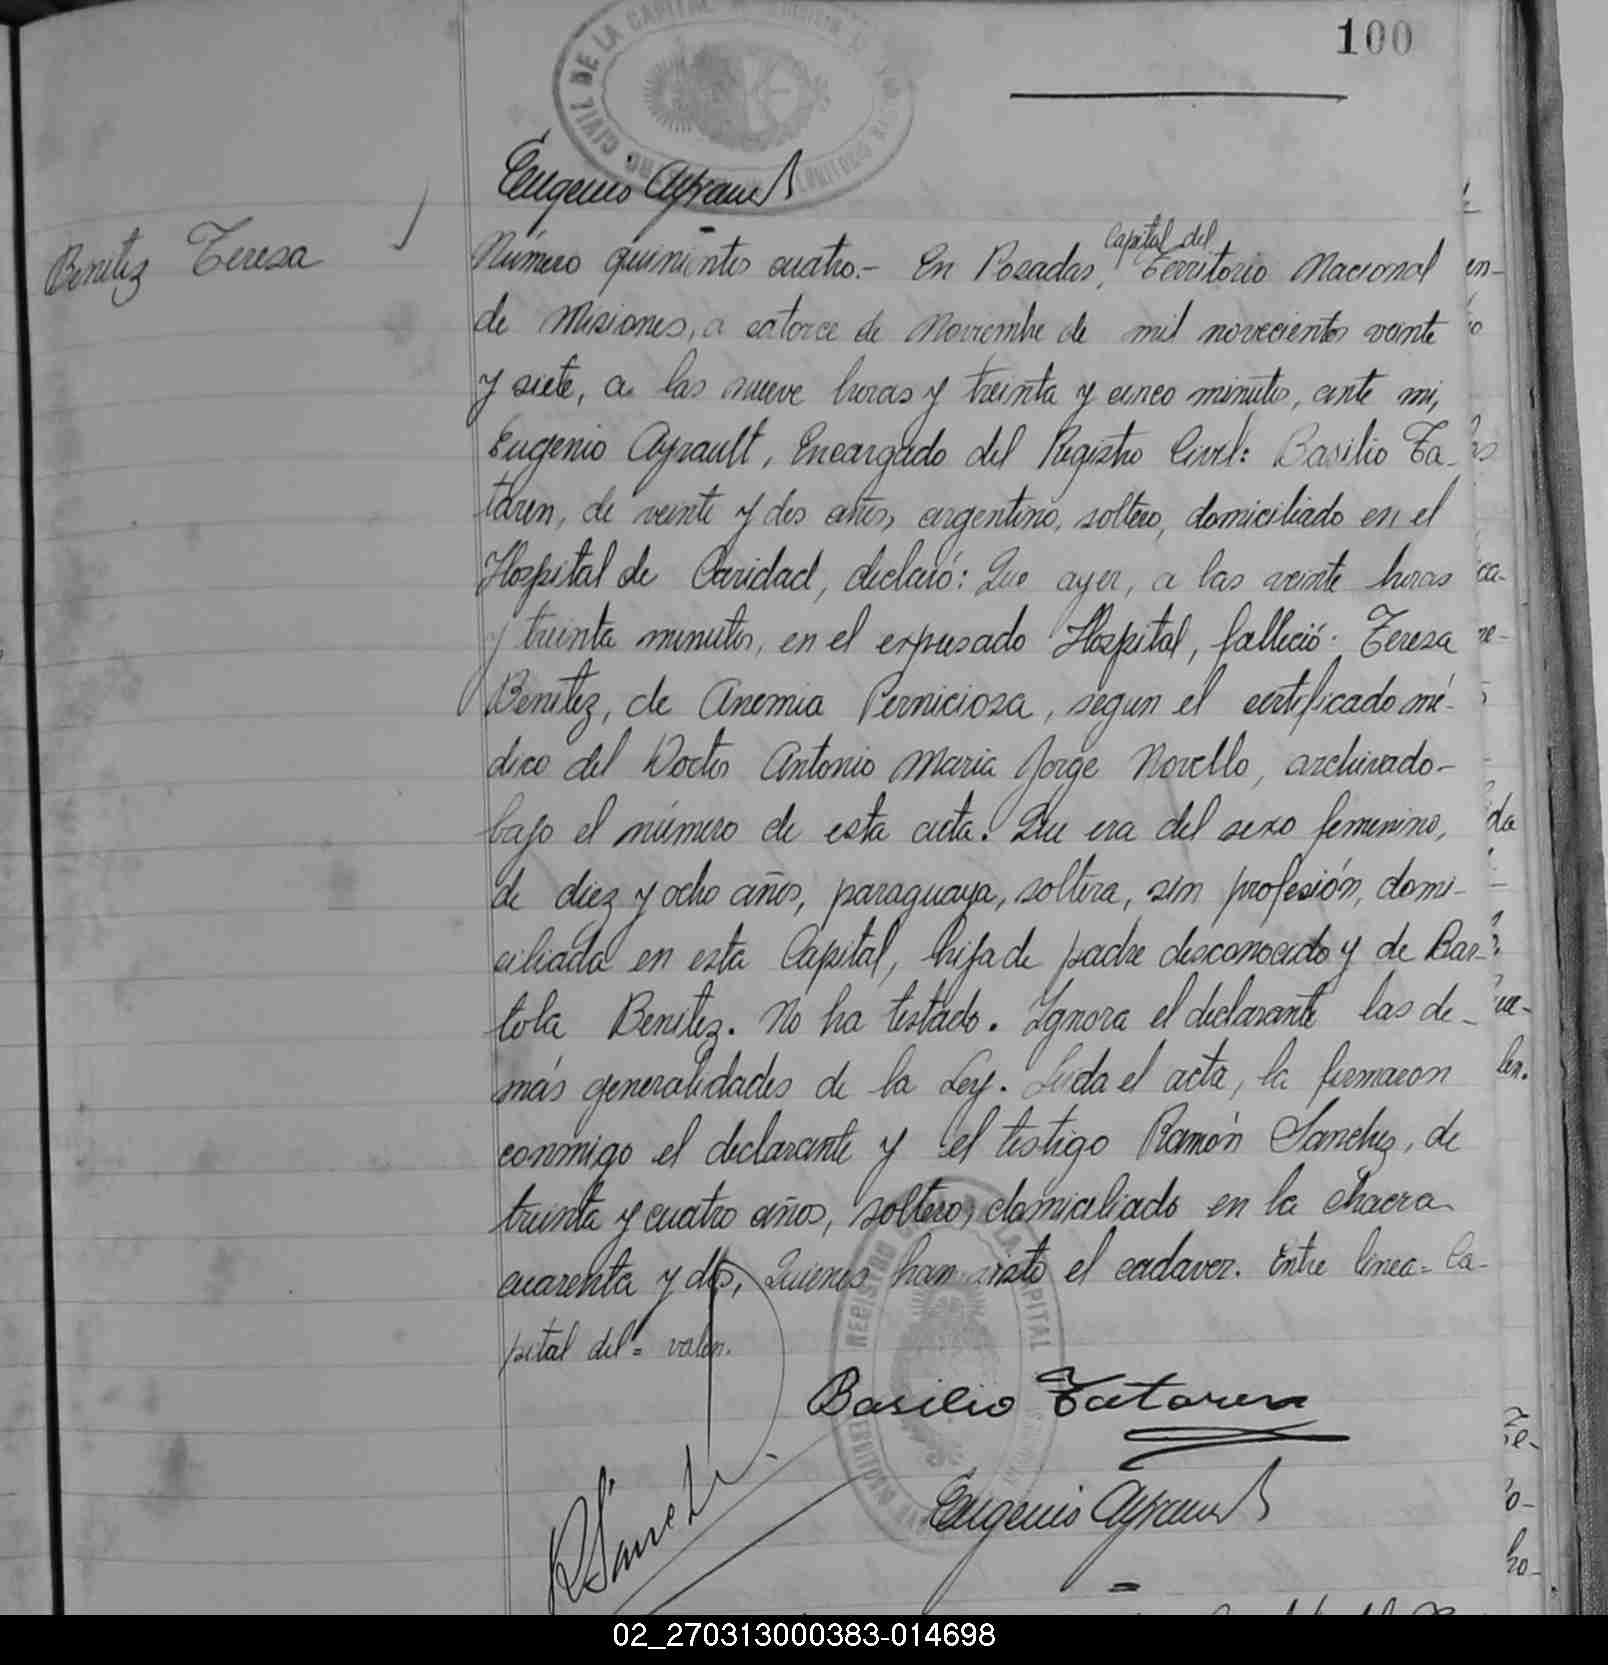 100
Eugenio Ayrault
Benitez Teresa
Número quinientos cuatro.- En Posadas, Capital del Territorio Nacional
de Misiones, a catorce de Noviembre de mil novecientos veinte
y siete, a las nueve horas y treinta y cinco minutos, ante mi,
Eugenio Ayrault, Encargado del Registro Civil: Basilio Ta-
taren, de veinte y dos años, argentino, soltero, domiciliado en el
Hospital de Caridad, declaró: Que ayer, a las veinte horas
y treinta minutos, en el expresado Hospital, falleció: Teresa
Benitez, de Anemia Perniciosa, segun el certificado mé-
dico del Doctor Antonio Maria Jorge Morello, archivado-
bajo el número de esta acta. Que era del sexo femenino,
de diez y ocho años, paraguaya, soltera, sin profesión, domi-
ciliada en esta Capital, hija de padre desconocido y de Bar-
tola Benitez. No ha testado. Ignora el declarante las de-
más generalidades de la Ley. Leida el acta, la firmaron
conmigo el declarante y el testigo Ramón Sanchez, de
treinta y cuatro años, soltero, domiciliado en la chacra
cuarenta y dos, quienes han visto el cadaver. Entre linea= Ca-
pital del= valen.
Basilio Tataren
R Sanchez
Eugenio Ayrault
02_270313000383-014698